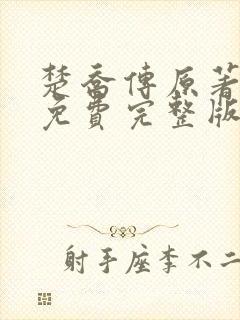 楚喬傳原著
免費完整版
射手座李不二